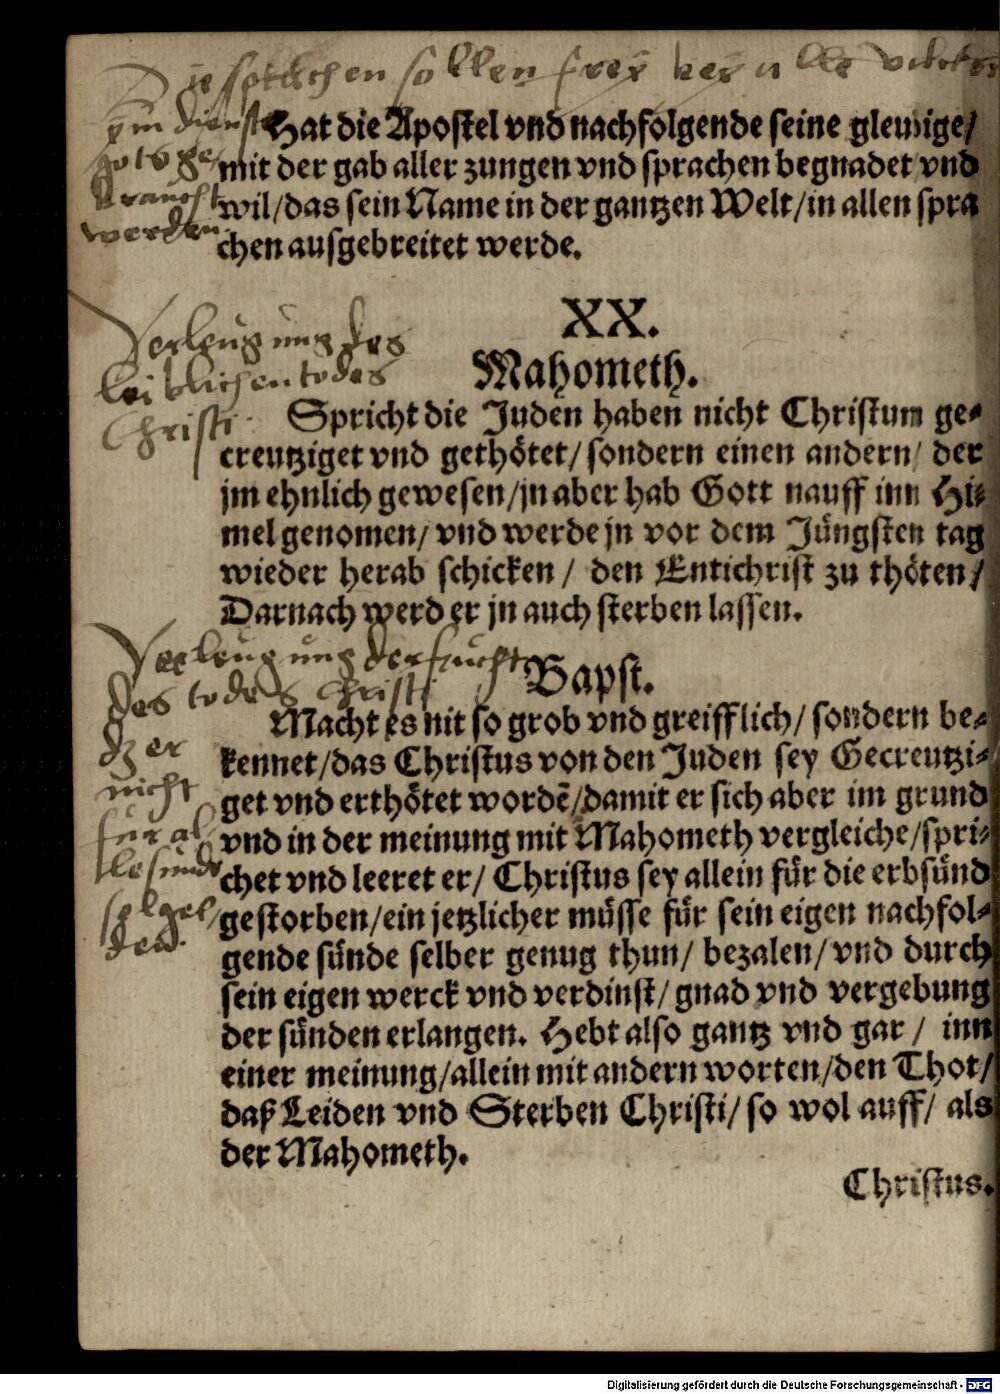 Die sprachen sollen frey bey alle
ym dienst
gots ge
braucht
werden
Hat die Apostel vnd nachfolgende seine gleubige/
mit der gab aller zungen vnd sprachen begnadet vnd
wil/das sein Name in der gantzen Welt/in allen spra
chen ausgebreitet werde.
XX.
Verleugnung des
leiblichen todes
Christi
Mahometh.
Spricht die Juden haben nicht Christum ge⸗
creutziget vnd gethötet/sondern einen andern/ der
jm ehnlich gewesen/jn aber hab Gott nauff inn Hi⸗
mel genomen/ vnd werde jn vor dem Jüngsten tag
wieder herab schicken/ den Entichrist zu thöten/
Darnach werd er jn auch sterben lassen.
Verleugnung der frucht
des todes Christi
dz er
nicht
fur al
le sunde
Bapst.
Macht es nit so grob vnd greifflich/ sondern be⸗
kennet/das Christus von den Juden sey Gecreutzi⸗
get vnd erthötet wordē/damit er sich aber im grund
vnd in der meinung mit Mahometh vergleiche/spri⸗
chet vnd leeret er/ Christus sey allein für die erbsünd
gestorben/ein jetzlicher müsse für sein eigen nachfol⸗
gende sünde selber genug thun/ bezalen/ vnd durch
sein eigen werck vnd verdinst/ gnad vnd vergebung
der sünden erlangen. Hebt also gantz vnd gar/ inn
einer meinung/allein mit andern worten/den Thot/
daß Leiden vnd Sterben Christi/ so wol auff/ als
der Mahometh.
Christus.
Digitalisierung gefördert durch die Deutsche Forschungsgemeinschaft - DFG